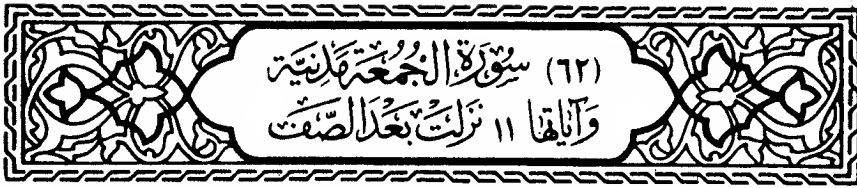 (٦٢) سُوْرَةِ الْجُمُعَةِ مَدَنِيَّة
وَآيَاتُهَا ١١ نَزَلَتْ بَعْدَ الصَّفّ